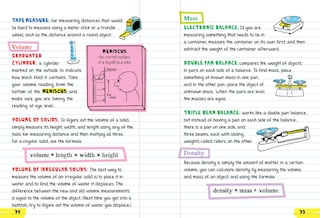 TAPE MEASURE: for measuring distances that would
be hard to measure using a meter stick or a trundle
wheel, such as the distance around a round object.
Volume
GRADUATED
CYLINDER: a cylinder
marked on the outside to indicate
how much fluid it contains. Take
your volume reading from the
bottom of the MENISCUS
make sure you are taking the
reading at eye level.
MENISCUS
the curved surface
of a liquid in a tube
VOLUME OF SOLIDS: To figure out the volume of a solid,
simply measure its height, width, and length using any of the
tools for measuring distance and then multiply all three.
for a regular solid, use the formula:
volume = length × width × height
VOLUME OF IRREGULAR SOLIDS: The best way to
measure the volume of an irregular solid is to place it in
water and to find the volume of water it displaces. The
difference between the new and old volume measurements
is equal to the volume of the object. (Next time you get into a
bathtub, try to figure out the volume of water you displace.)
34
Mass
ELECTRONIC BALANCE: If you are
measuring something that needs to be in
a container, measure the container on its own first, and then
subtract the weight of the container afterward.
DOUBLE PAN BALANCE: compares the weight of objects
in pans on each side of a balance. To find mass, place
something of known mass in one pan,
and in the other pan, place the object of
unknown mass. When the pans are level,
the masses are equal.
TRIPLE BEAM BALANCE: works like a double pan balance,
but instead of having a pan on each side of the balance,
there is a pan on one side, and
three beams, each with sliding
weights called riders, on the other.
Density
Because density is simply the amount of matter in a certain
volume, you can calculate density by measuring volume
and mass of an object, and using the formula:
density = mass ÷ volume
35